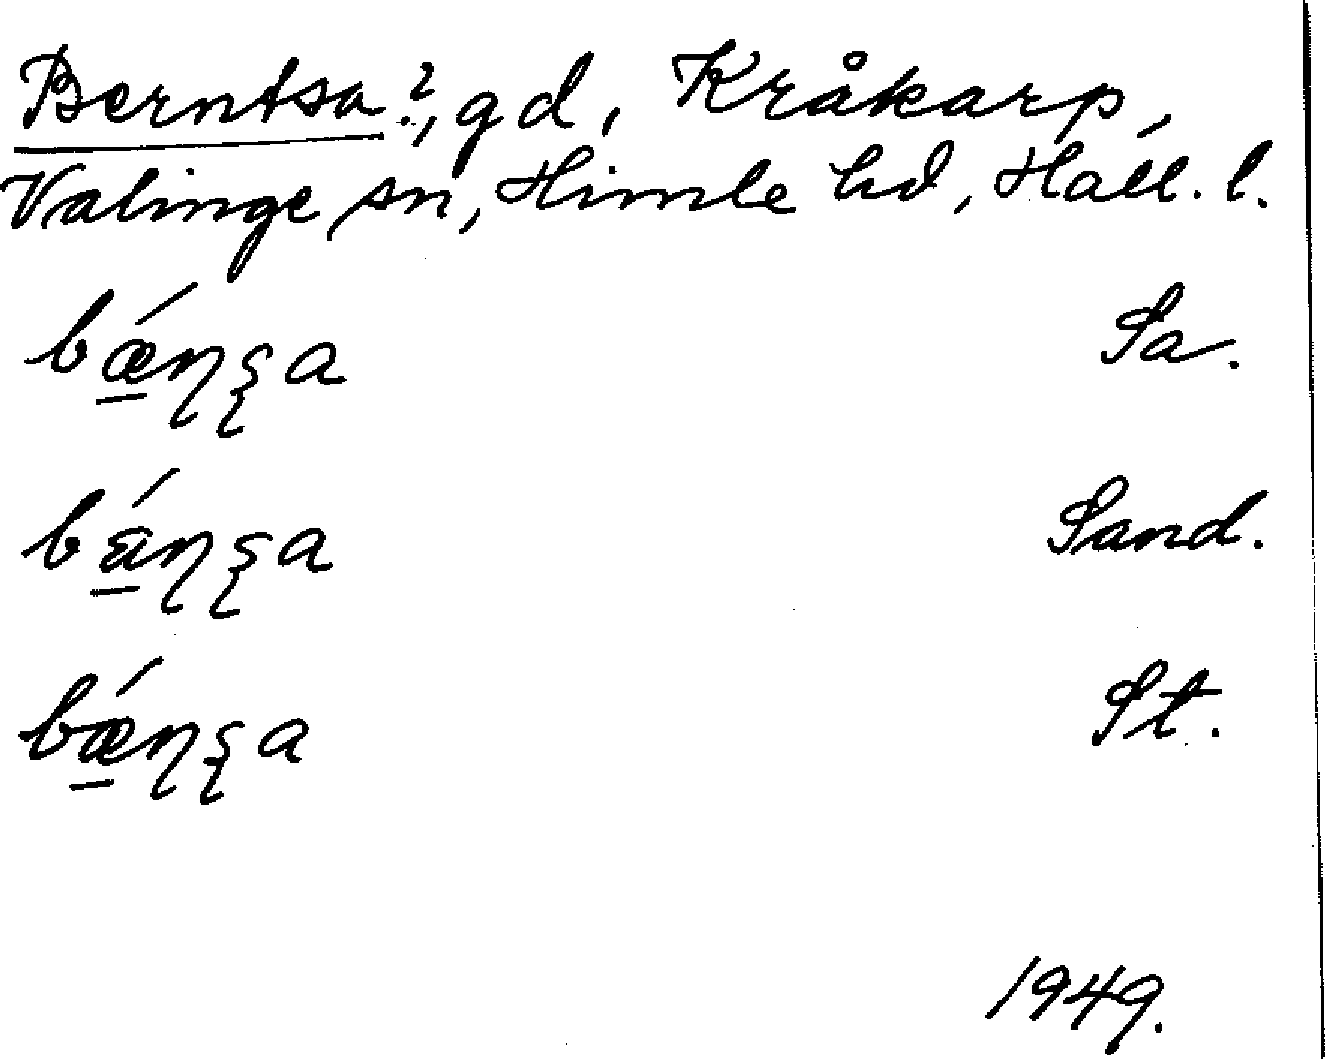 Berntsa?, gd, Kråkarp,
Valinge sn, Himle hd, Hall. l.
bǽ̱ɳʂa Sa.
bá̱ɳʂa Sand.
bǽ̱ɳʂa St.
1949.